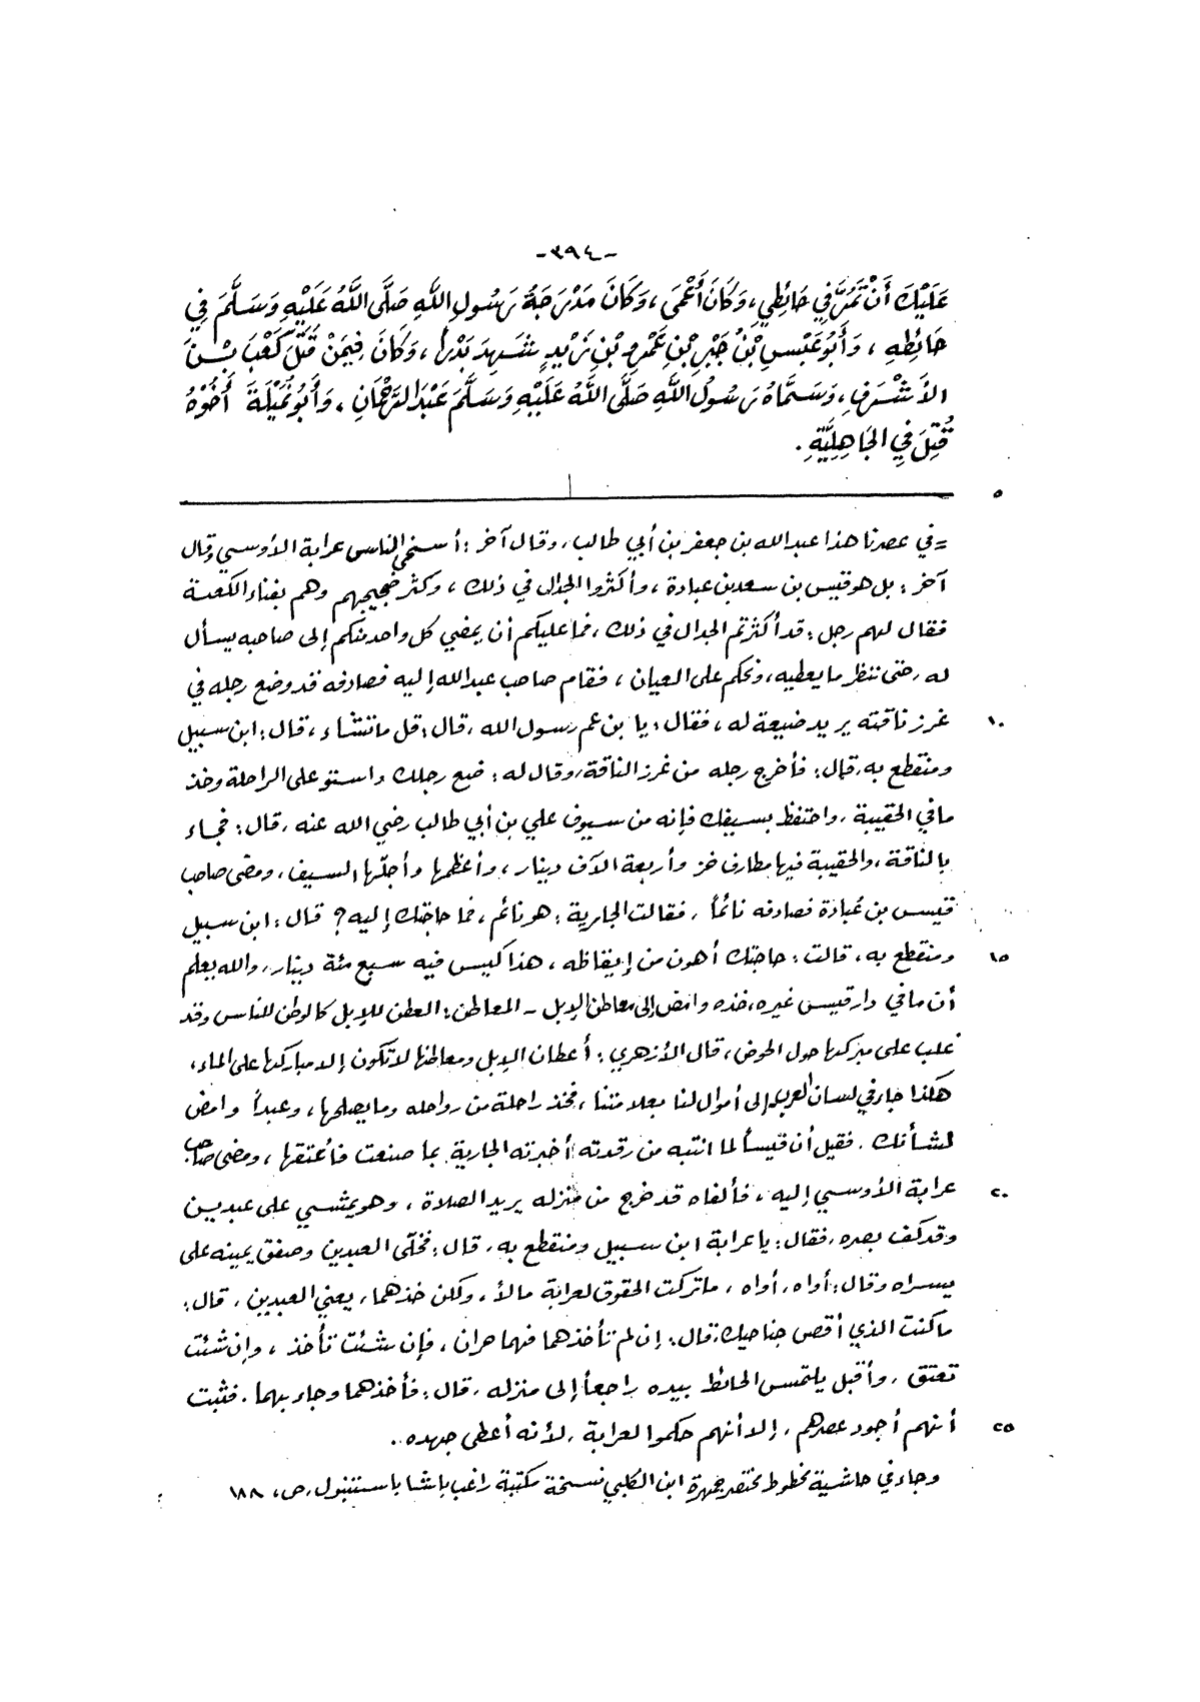 -٣٩٤-
عَلَيْكَ أَنْ تَمُرَّ فِي حَائِطِي، وَكَانَ أَعْمَى، وَكَانَ مَدْرَجَةُ رَسُولِ اللَّهِ صَلَّى اللَّهُ عَلَيْهِ وَسَلَّمَ فِي
حَائِطِهِ، وَأَبُو عَبْسِ بْنُ جَبْرِ بْنِ عَمْرِو بْنِ زَيْدٍ شَهِدَ بَدْراً، وَكَانَ فِيمَنْ قَتَلَ كَعْبَ بْنَ
الأَشْرَفِ، وَسَمَّاهُ رَسُولُ اللَّهِ صَلَّى اللَّهُ عَلَيْهِ وَسَلَّمَ عَبْدَ الرَّحْمَانِ. وَأَبُو نُمَيْلَةَ أَخُوهُ
قُتِلَ فِي الجَاهِلِيَّةِ.
٥
= في عصرنا هذا عبد الله بن جعفر بن أبي طالب، وقال آخر: أسخى الناس عرابة الأوسي وقال
آخر: بل هو قيس بن سعد بن عبادة، وأكثروا الجدال في ذلك، وكثر ضجيجهم وهم بفناء الكعبة
فقال لهم رجل: قد أكثرتم الجدال في ذلك، فما عليكم أن يمضي كل واحد منكم إلى صاحبه يسأل
له، حتى ننظر ما يعطيه، ونحكم على العيان، فقام صاحب عبد الله إليه فصادفه قد وضع رجله في
١٠ غرز ناقته يريد ضيعة له، فقال: يا بن عم رسول الله، قال: قل ما تشاء، قال: ابن سبيل
ومنقطع به، قال: فأخرج رجله من غرز الناقة، وقال له: ضع رجلك واستو على الراحلة وخذ
ما في الحقيبة، واحتفظ بسيفك فإنه من سيوف علي بن أبي طالب رضي الله عنه، قال: فجاء
بالناقة، والحقيبة فيها مطارف خز وأربعة آلاف دينار، وأعظمها وأجلّها السيف، ومضى صاحب
قيس بن عُبادة فصادفه نائماً، فقالت الجارية: هو نائم، فما حاجتك إليه؟ قال: ابن سبيل
١٥ ومنقطع به، قالت: حاجتك أهون من إيقاظه، هذا كيس فيه سبع مئة دينار، والله يعلم
أن ما في دار قيس غيره، خذه وامض إلى معاطن الإبل - المعاطن: العطن للإبل كالوطن للناس وقد
غلب على مبركها حول الحوض، قال الأزهري: أعطان الإبل ومعاطنها لا تكون إلا مباركها على الماء،
هكذا جاء في لسان العرب إلى أموال لنا بعلامتنا، فخذ راحلة من رواحله وما يصلحها، وعبداً وامض
لشأنك. فقيل أن قيساً لما انتبه من رقدته أخبرته الجارية بما صنعت فأعتقها، ومضى صاحب
٢٠ عرابة الأوسي إليه، فألفاه قد خرج من منزله يريد الصلاة، وهو يمشي على عبدين
وقد كف بصره، فقال: يا عرابة ابن سبيل ومنقطع به، قال: فخلّى العبدين وصفق يمينه على
يسراه وقال: أواه، أواه، ما تركت الحقوق لعرابة مالاً، ولكن خذهما، يعني العبدين، قال:
ما كنت الذي أقص جناحيك، قال: إن لم تأخذهما فهما حران، فإن شئت تأخذ، وإن شئت
تعتق، وأقبل يلتمس الحائط بيده راجعاً إلى منزله، قال: فأخذهما وجاء بهما. فثبت
٢٥ أنهم أجود عصرهم، إلا أنهم حكموا لعرابة، لأنه أعطى جهده..
وجاء في حاشية مخطوط مختصر جمهرة ابن الكلبي نسخة مكتبة راغب باشا باستنبول، ص، ١٨٨ :